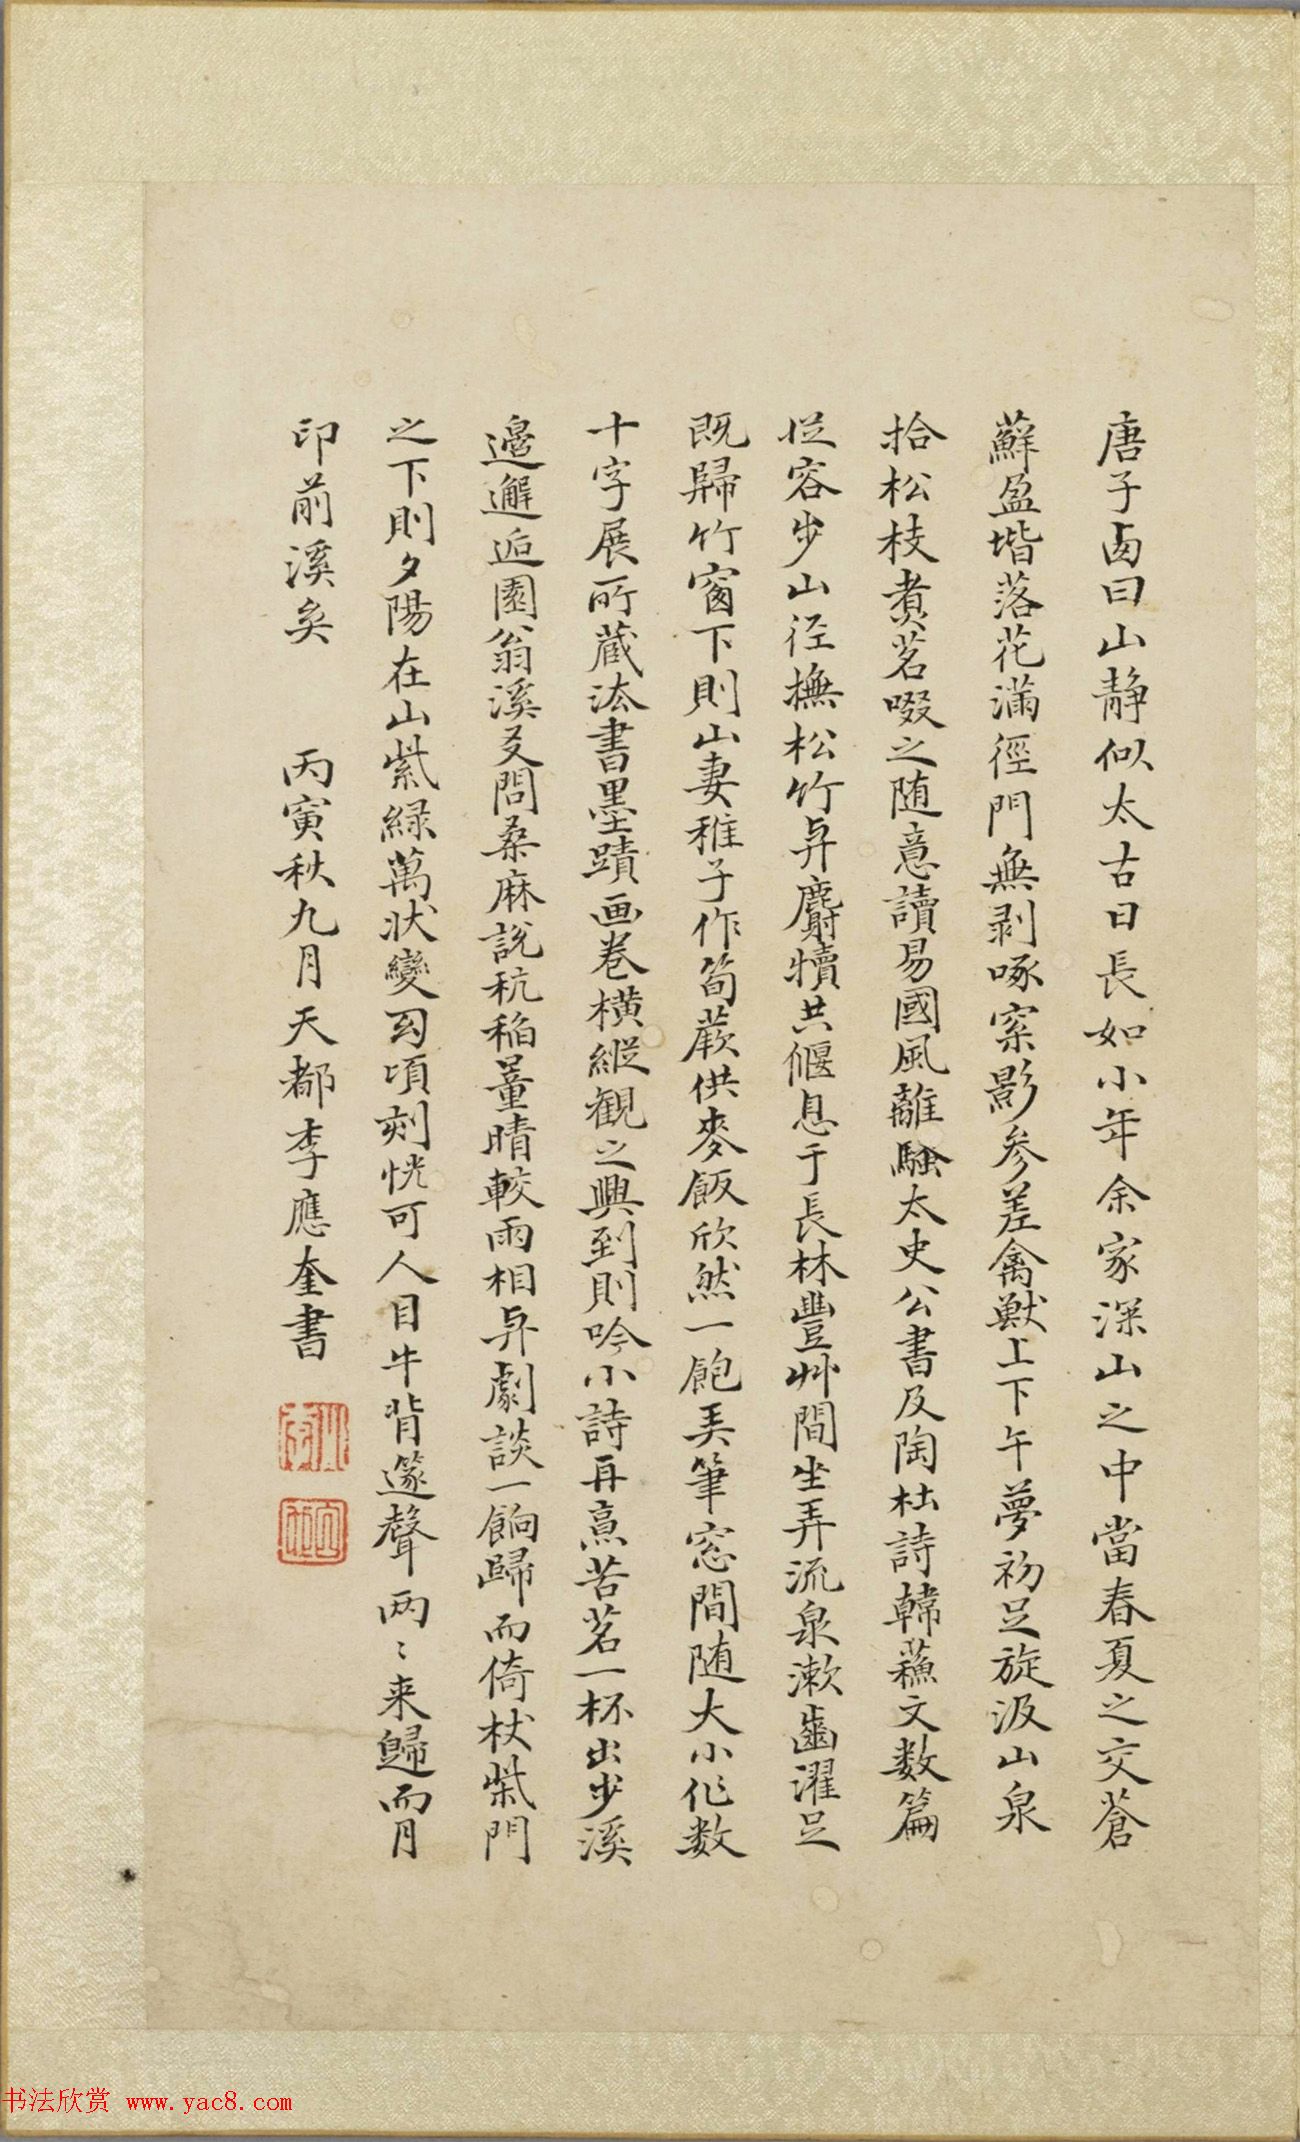 唐子西曰山静似太古日長如小年余家深山之中當春夏之交蒼
蘚盈堦落花滿徑門無剥啄窓影参差禽獸上下午夢初足旋汲山泉
拾松枝煑茗啜之随意讀易國風離騷太史公書及陶杜詩韓蘓文数篇
從容步山徑撫松竹与麛犢共偃息于長林豐艸間坐弄流泉漱齒濯足
既歸竹窗下則山妻稚子作筍蕨供麥飯欣然一飽弄筆窓間随大小作数
十字展所藏法書墨蹟画卷横縱觀之興到則吟小詩再烹苦茗一杯出步溪
邊邂逅園翁溪叟問桑麻說秔稻量晴較雨相与劇談一餉歸而倚杖柴門
之下則夕陽在山紫緑萬状變幻頃刻恍可人目牛背篴聲兩〻来歸而月
印前溪矣 丙寅秋九月天都李應奎書
书法欣赏 www.yac8.com